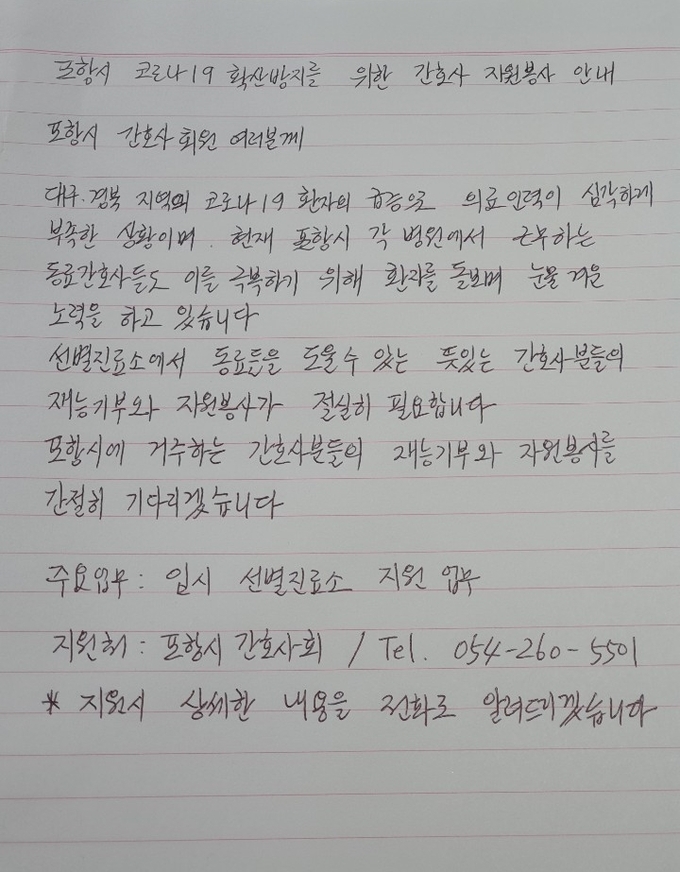 포항시 코로나19 확산방지를 위한 간호사 자원봉사 안내
포항시 간호사회원 여러분께
대구·경북 지역의 코로나19 환자의 급증으로 의료인력이 심각하게
부족한 상황이며. 현재 포항시 각 병원에서 근무하는
동료간호사들도 이를 극복하기 위해 환자를 돌보며 눈물 겨운
노력을 하고 있습니다
선별진료소에서 동료들을 도울수 있는 뜻있는 간호사분들의
재능기부와 자원봉사가 절실히 필요합니다
포항시에 거주하는 간호사분들의 재능기부와 자원봉사를
간절히 기다리겠습니다
주요업무 : 임시 선별진료소 지원 업무
지원처 : 포항시 간호사회 / Tel. 054-260-5501
* 지원시 상세한 내용을 전화로 알려드리겠습니다